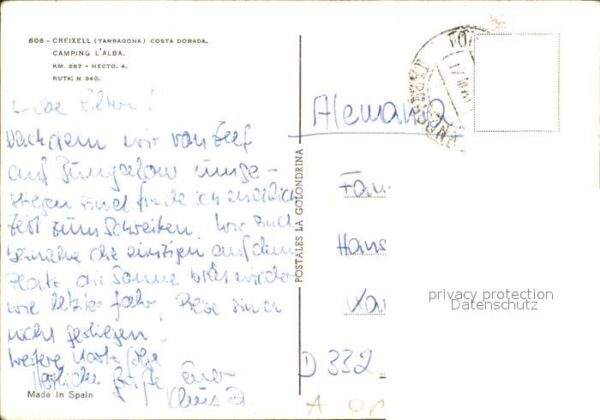 606 - CREIXELL (TARRAGONA) COSTA DORADA.
CAMPING L'ALBA.
KM. 267 - HECTO. 4.
RUTA: N 340.
Liebe Eltern!
Nachdem wir von Zelt
auf Bungalow umge-
stiegen sind finde ich endlich
Zeit zum Schreiben. Wir sind
beinahe die einzigen auf dem
Platz die Sonne wieder
wie letztes Jahr. Preise sind
nicht gestiegen!
Weitere Karte folgt
Herzliche Grüße Euer
Made in Spain
POSTALES LA GOLONDRINA
Alemania
Fam
Hans
Kar
D 332
privacy protection
Datenschutz